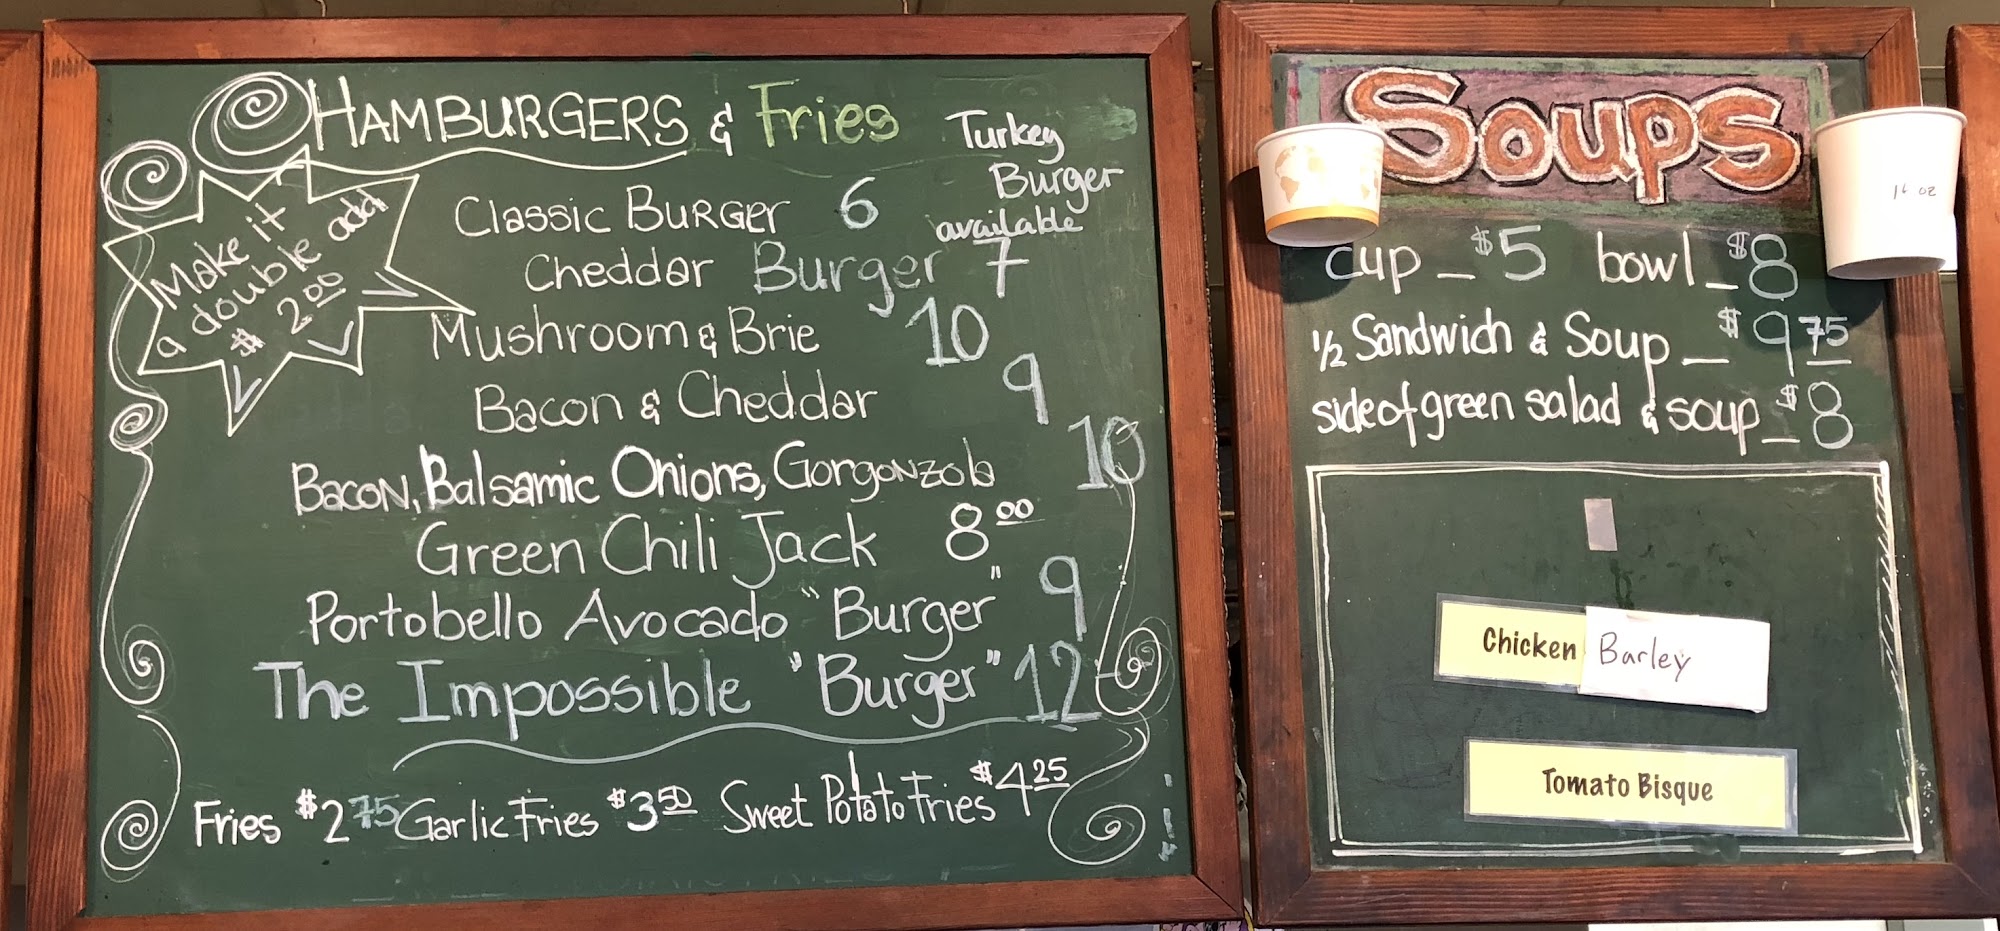 HAMBURGERS & Fries
Turkey
Burger
available
Make it
a double add
$ 2.00
Classic Burger 6
Cheddar Burger 7
Mushroom & Brie 10
Bacon & Cheddar 9
Bacon, Balsamic Onions, Gorgonzola 10
Green Chili Jack 8.00
Portobello Avocado "Burger" 9
The Impossible "Burger" 12
Fries $2.75 Garlic Fries $3.50 Sweet Potato Fries $4.25
Soups
16 oz
cup _ $5 bowl _ $8
1/2 Sandwich & Soup _ $9.75
side of green salad & soup _ $8
Chicken Barley
Tomato Bisque